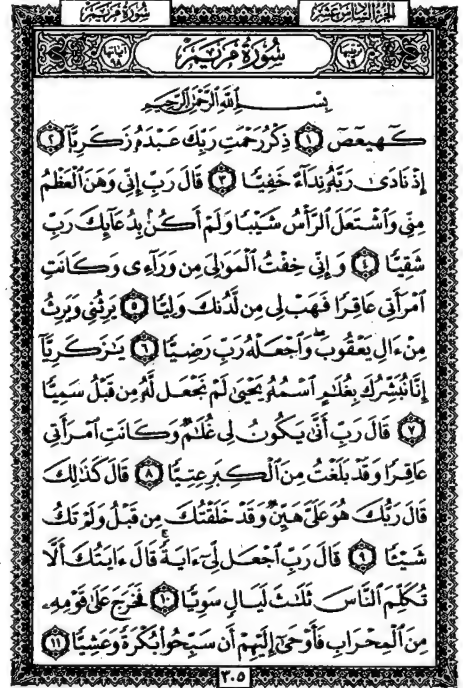 سُورَةُ مَرْيَمَ الجزء السادس عشر
ترتيبها ١٩ سُورَةُ مَرْيَمَ آياتها ٩٨
بِسْمِ اللَّهِ الرَّحْمَٰنِ الرَّحِيمِ
كٓهيعٓصٓ ١ ذِكْرُ رَحْمَتِ رَبِّكَ عَبْدَهُۥ زَكَرِيَّآ ٢
إِذْ نَادَىٰ رَبَّهُۥ نِدَآءً خَفِيًّا ٣ قَالَ رَبِّ إِنِّى وَهَنَ ٱلْعَظْمُ
مِنِّى وَٱشْتَعَلَ ٱلرَّأْسُ شَيْبًا وَلَمْ أَكُنۢ بِدُعَآئِكَ رَبِّ
شَقِيًّا ٤ وَإِنِّى خِفْتُ ٱلْمَوَٰلِىَ مِن وَرَآءِى وَكَانَتِ
ٱمْرَأَتِى عَاقِرًا فَهَبْ لِى مِن لَّدُنكَ وَلِيًّا ٥ يَرِثُنِى وَيَرِثُ
مِنْ ءَالِ يَعْقُوبَ ۖ وَٱجْعَلْهُ رَبِّ رَضِيًّا ٦ يَٰزَكَرِيَّآ
إِنَّا نُبَشِّرُكَ بِغُلَٰمٍ ٱسْمُهُۥ يَحْيَىٰ لَمْ نَجْعَل لَّهُۥ مِن قَبْلُ سَمِيًّا
٧ قَالَ رَبِّ أَنَّىٰ يَكُونُ لِى غُلَٰمٌ وَكَانَتِ ٱمْرَأَتِى
عَاقِرًا وَقَدْ بَلَغْتُ مِنَ ٱلْكِبَرِ عِتِيًّا ٨ قَالَ كَذَٰلِكَ
قَالَ رَبُّكَ هُوَ عَلَىَّ هَيِّنٌ وَقَدْ خَلَقْتُكَ مِن قَبْلُ وَلَمْ تَكُ
شَيْـًٔا ٩ قَالَ رَبِّ ٱجْعَل لِّىٓ ءَايَةً ۚ قَالَ ءَايَتُكَ أَلَّا
تُكَلِّمَ ٱلنَّاسَ ثَلَٰثَ لَيَالٍ سَوِيًّا ١٠ فَخَرَجَ عَلَىٰ قَوْمِهِۦ
مِنَ ٱلْمِحْرَابِ فَأَوْحَىٰٓ إِلَيْهِمْ أَن سَبِّحُوا۟ بُكْرَةً وَعَشِيًّا ١١
٣٠٥